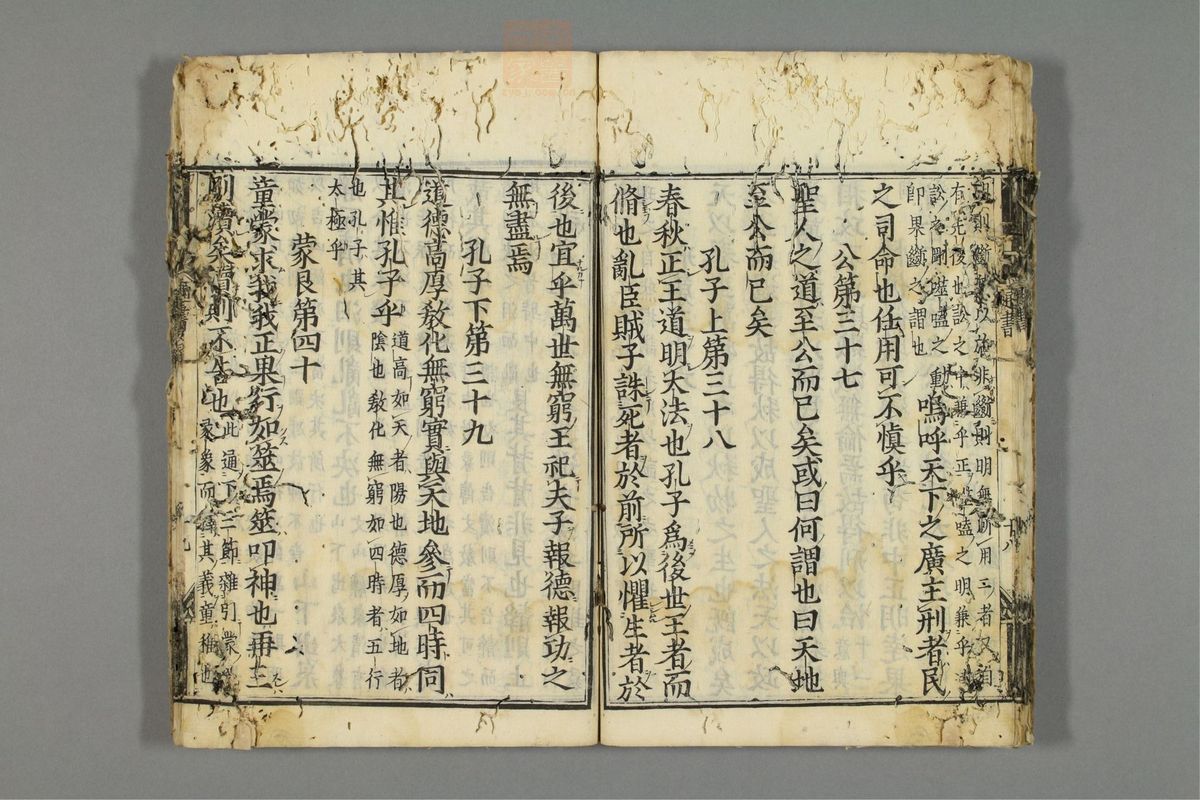 有先後也訟之中兼乎正噬嗑之明兼乎
訟之剛噬嗑之動
即果斷之謂也
嗚呼天下之廣主刑者民
之司命也任用可不慎乎
公第三十七
聖人之道至公而已矣或曰何謂也曰天地
至公而已矣
孔子上第三十八
春秋正王道明大法也孔子爲後世王者而
脩也亂臣賊子誅死者於前所以懼生者於
後也宜乎萬世無窮王祀夫子報德報功之
無盡焉
孔子下第三十九
道德高厚敎化無窮實與天地參而四時同
其惟孔子乎
道高如天者陽也德厚如地者
陰也敎化無窮如四時者五行
也孔子其
太極乎
蒙艮第四十
童蒙求我我正果行如筮焉筮叩神也再三
則瀆矣瀆則不告也
此通下三節雜引蒙
彖象而釋其義童稚也